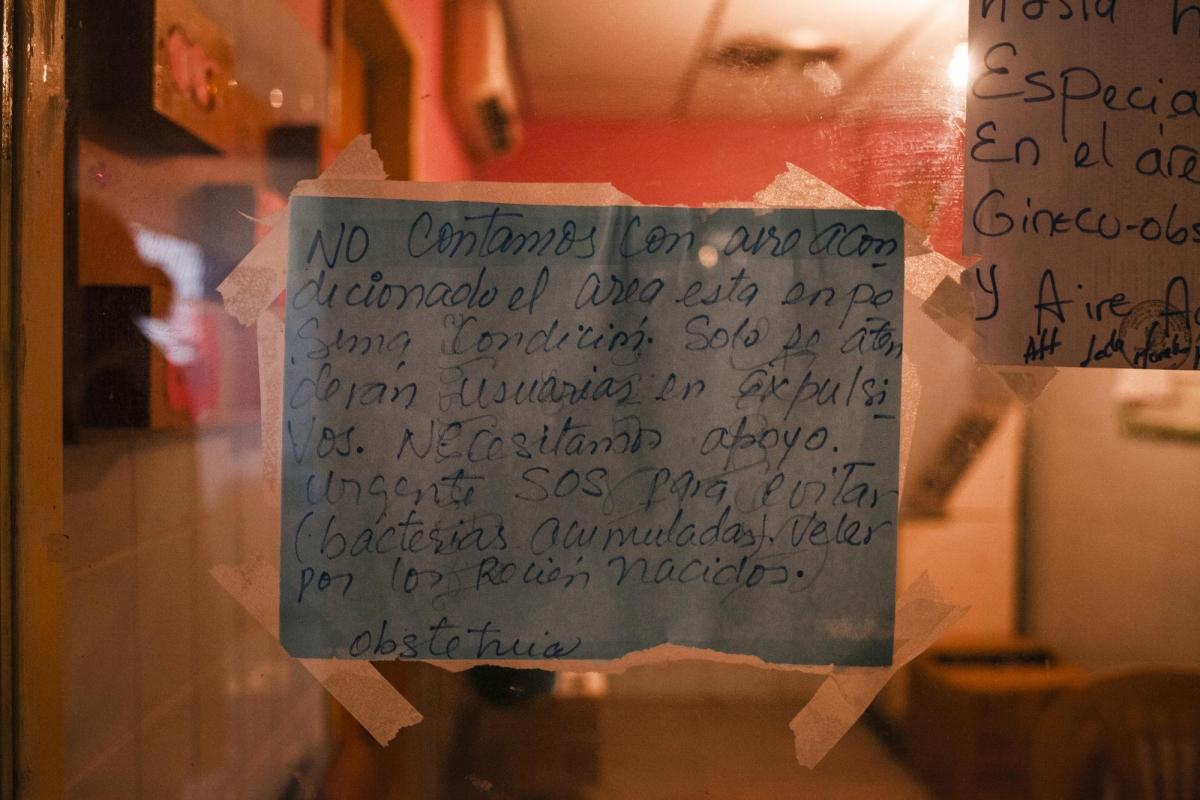 NO Contamos Con aire acon
dicionado el area esta en pe
sima Condición. Solo se aten
derán usuarias en expulsi
Vos. NECesitamos apoyo.
urgente SOS para evitar
(bacterias acumuladas). Veler
por los Recién nacidos.
obstetricia
hasta h
Especia
En el áre
Gineco-obs
y Aire A
Att